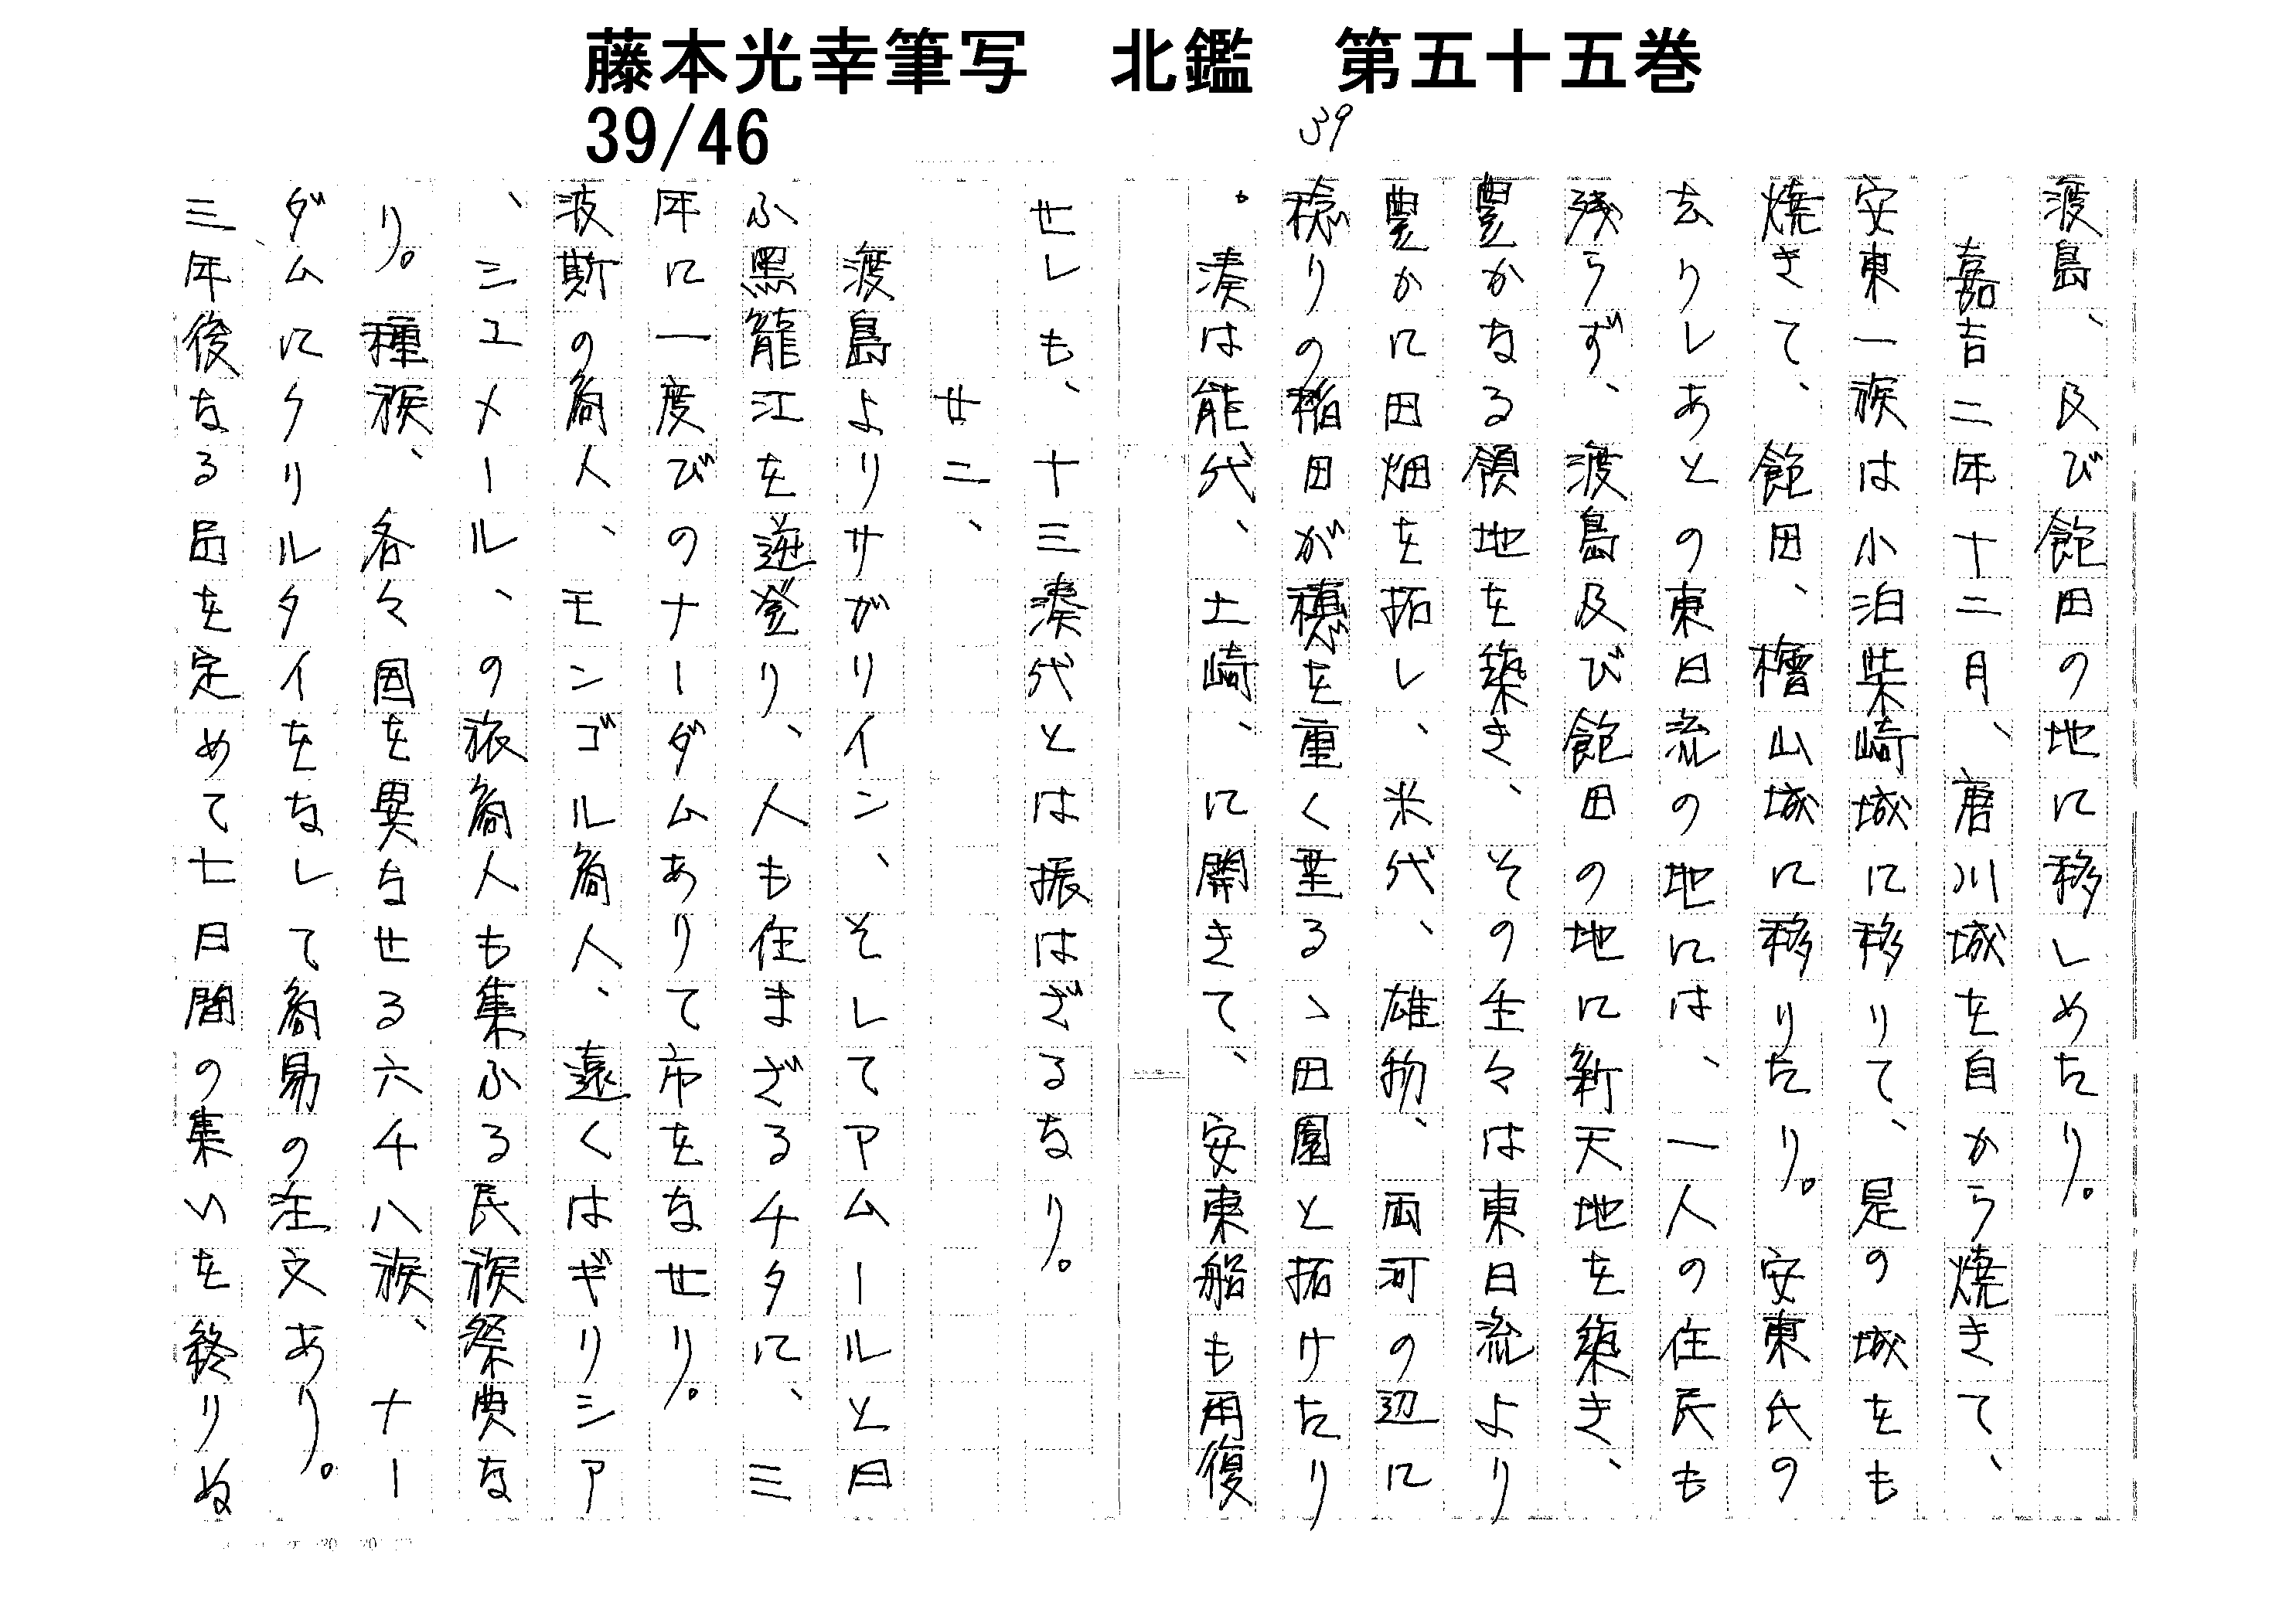 藤本光幸筆写　北鑑　第五十五巻
39/46
39
渡島、及び飽田の地に移しめたり。
嘉吉二年十二月、唐川城を自から焼きて、
安東一族は小泊柴崎城に移りて、是の城をも
焼きて、飽田、檜山城に移りたり。安東氏の
去りしあとの東日流の地には、一人の住民も
残らず、渡島及び飽田の地に新天地を築き、
豊かなる領地を築き、その主々は東日流より
豊かに田畑を拓し、米代、雄物、両河の辺に
稔りの稲田が穂を重く垂るゝ田園と拓けたり
。湊は能代、土崎、に開きて、安東船も再復
せしも、十三湊代とは振はざるなり。
廿二、
渡島よりサガリイン、そしてアムールと曰
ふ黒龍江を逆登り、人も住まざるチタに、三
年に一度びのナーダムありて市をなせり。
波斯の商人、モンゴル商人、遠くはギリシア
、シユメール、の旅商人も集ふる民族祭典な
り。種族、各々国を異なせる六千八族、ナー
ダムにクリルタイをなして商易の注文あり。
三年後なる品を定めて七日間の集いを終りぬ